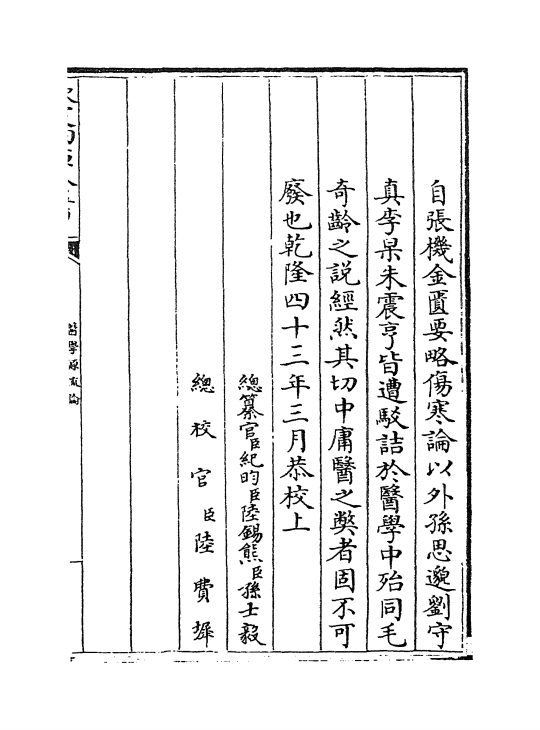 自張機金匱要略傷寒論以外孫思邈劉守
真李杲朱震亨皆遭駁詰於醫學中殆同毛
奇齡之説經然其切中庸醫之弊者固不可
廢也乾隆四十三年三月恭校上
總纂官臣紀昀臣陸錫熊臣孫士毅
總校官臣陸費墀
醫學源流論